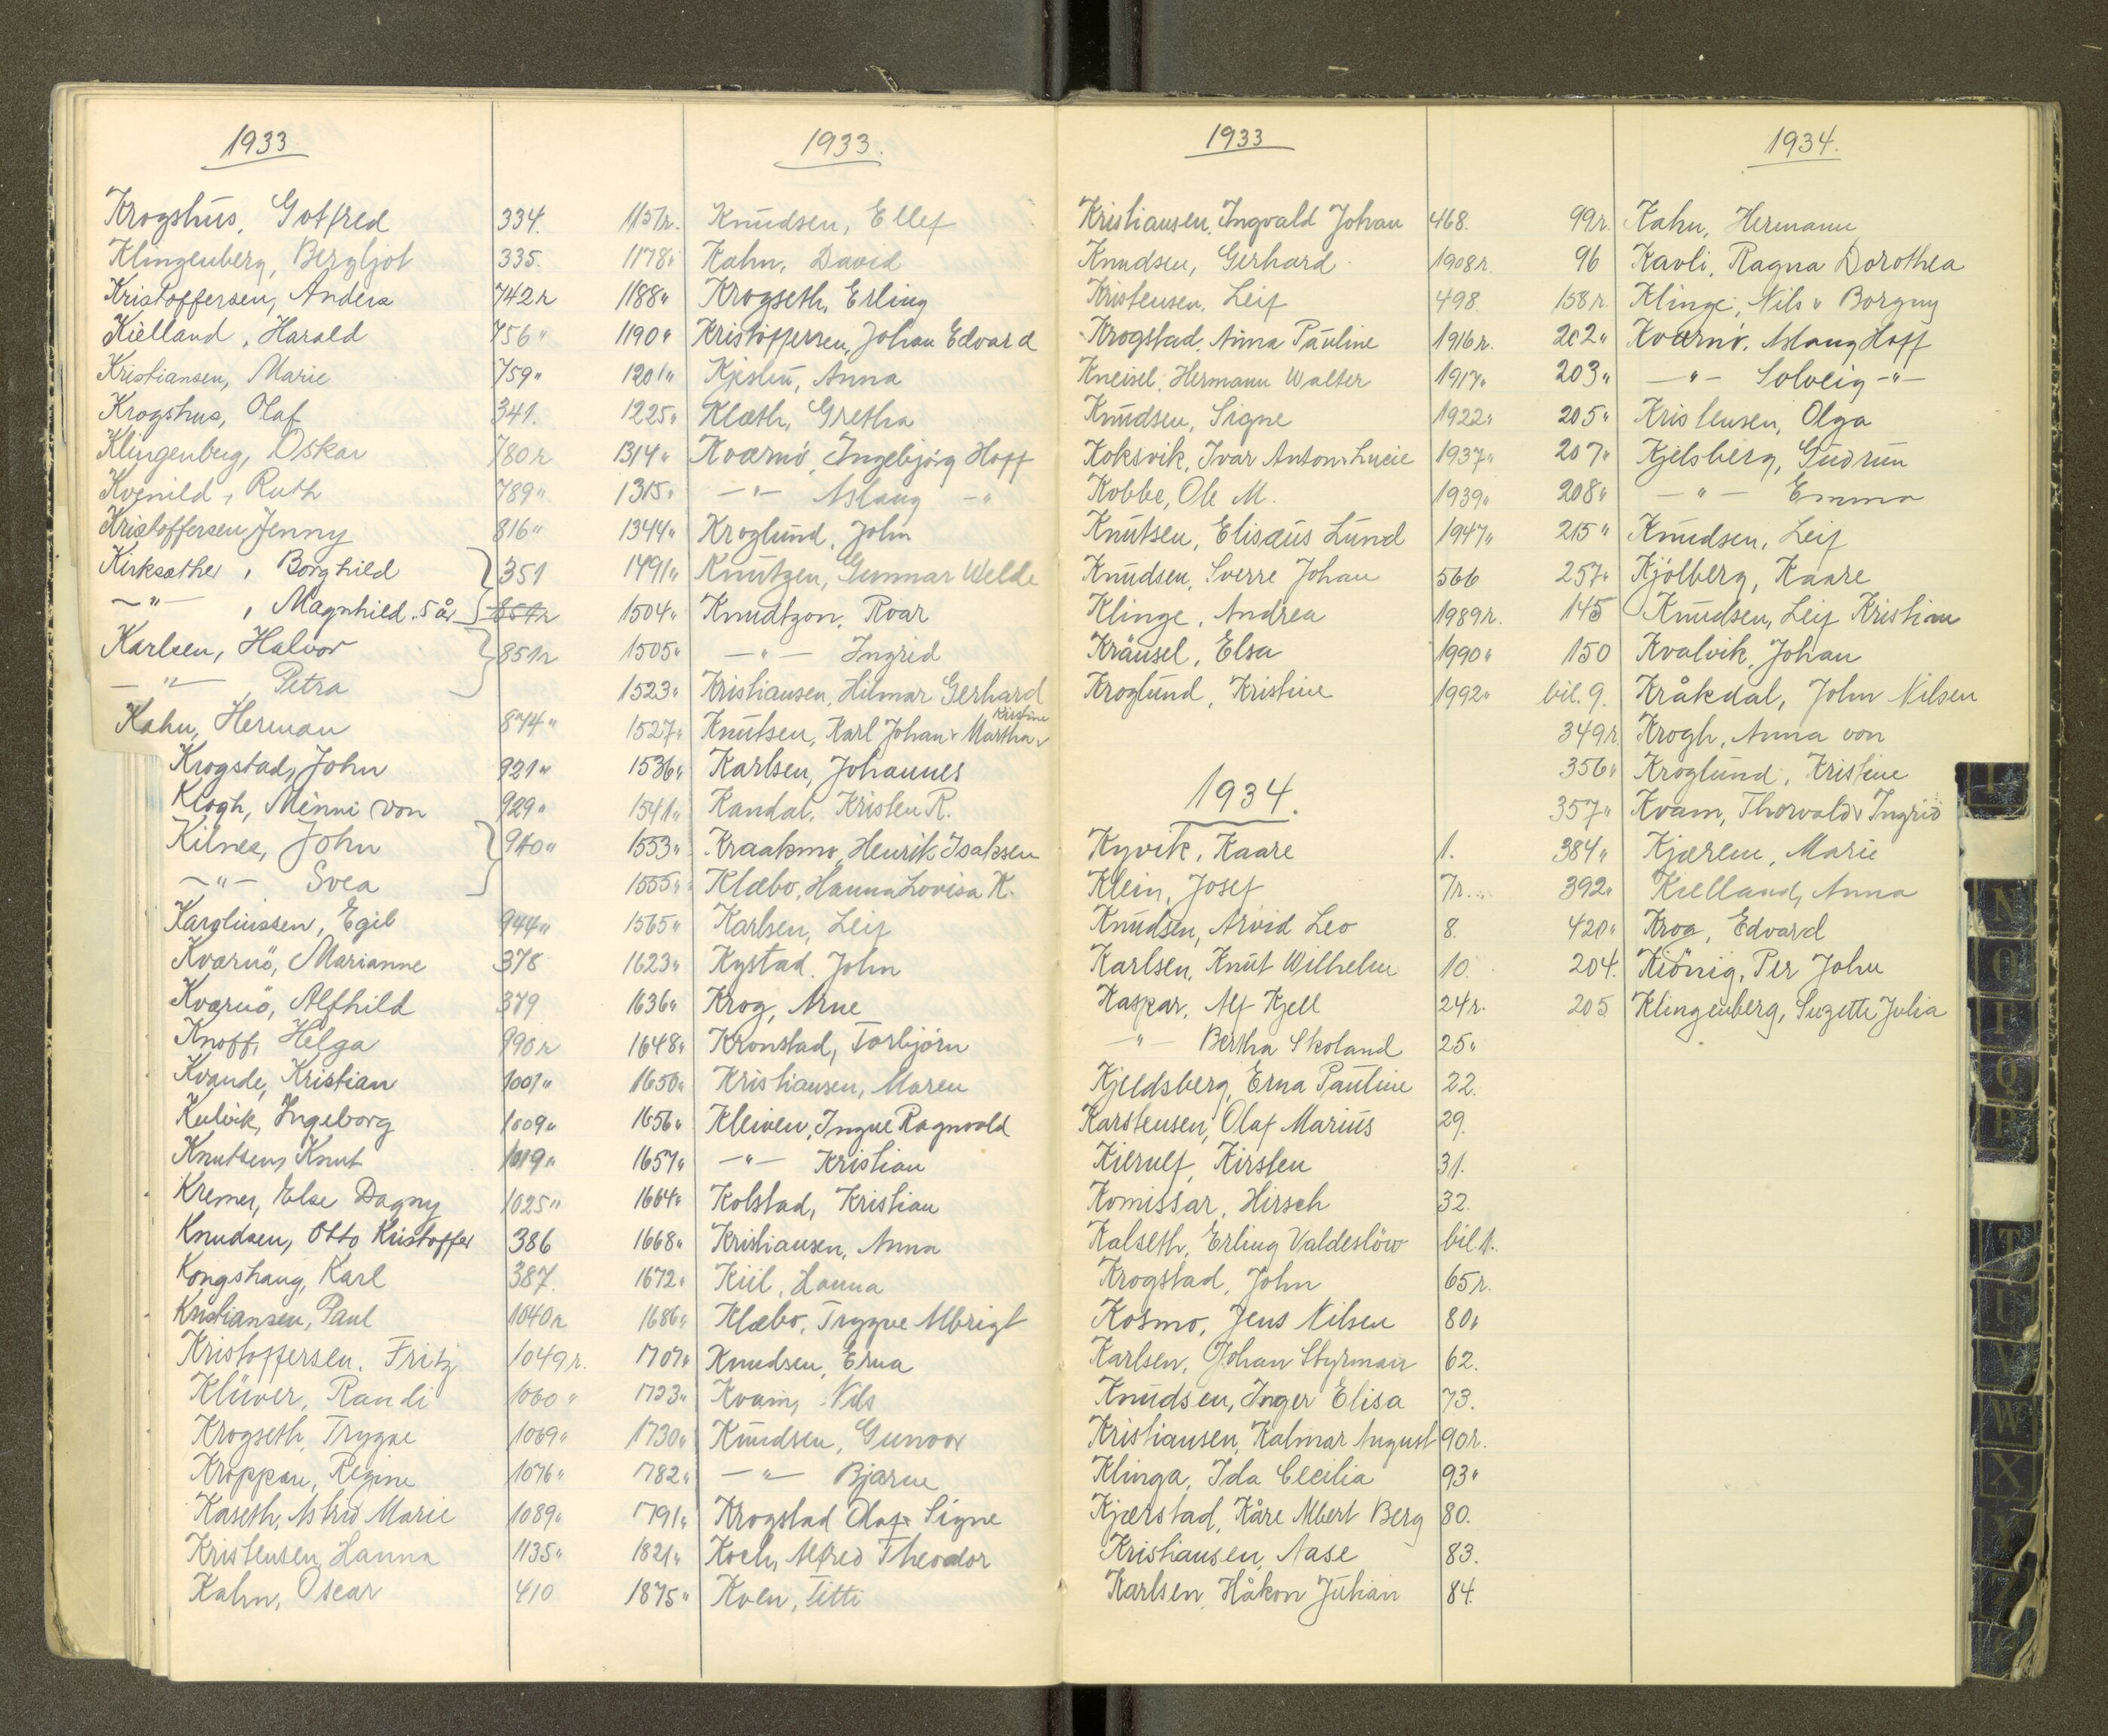 1933
Krogshus, Gotfred 334.
Klingenberg, Bergljot 335.
Kristoffersen, Anders 742r
Kielland, Harald 756"
Kristiansen, Marie 759"
Krogshus, Olaf 341.
Klingenberg, Oskar 780r
Kvenild, Ruth 789"
Kristoffersen, Jenny 816"
Kirksæther, Borghild 351
-"- , Magnhild. 5 år 851r
Karlsen, Halvor 851r
-"- , Petra
Kahn, Herman 874"
Krogstad, John 921"
Krogh, Minni von 929"
Kilnes, John 940"
-"- Svea
Karoliussen, Egil 944"
Kvarnö, Marianne 378
Kvarnö, Alfhild 379
Knoff, Helga 990r
Kvande, Kristian 1001"
Kulvik, Ingeborg 1009"
Knutsen, Knut 1019"
Kremer, Else Dagny 1025"
Knudsen, Otto Kristoffer 386
Kongshaug, Karl 387.
Kristiansen, Paul 1040r
Kristoffersen, Fritz 1049r.
Klüver, Randi 1060"
Krogseth, Trygve 1069"
Kroppan, Regine 1076"
Kaseth, Astrid Marie 1089"
Kristensen, Hanna 1135"
Kahn, Oscar 410
1933.
1157r. Knudsen, Ellef
1178" Kahn, David
1188" Krogseth, Erling
1190" Kristoffersen, Johan Edvard
1201" Kjeslu, Anna
1225" Klæth, Gretha
1314" Kvernö, Ingebjörg Hoff
1315" -"- Aslaug -"
1344" Kroglund, John
1491" Knutzen, Gunnar Welde
1504" Knudtzon, Roar
1505" -"- Ingrid
1523" Kristiansen, Hilmar Gerhard
1527" Knutsen, Karl Johan v Martha Kirstine
1536" Karlsen, Johannes
1541" Kandal, Kristen R.
1553" Kraakmo, Henrik Isaksen
1555" Klæbo, Hanna Lovisa K.
1565" Karlsen, Leif
1623" Kystad, John
1636" Krog, Arne
1648" Kronstad, Torbjörn
1650" Kristiansen, Maren
1656" Kleiven, Ingve Ragnvald
1657" -"- Kristian
1664" Kolstad, Kristian
1668" Kristiansen, Anna
1672" Kiil, Hanna
1686" Klæbo, Trygve Albrigt
1707" Knudsen, Erna
1723" Kvam, Nils
1730" Knudsen, Gunvor
1782" -"- Bjarne
1791" Krogstad Olaf v Signe
1821" Koch, Alfred Theodor
1875" Kven, Titti
1933
Kristiansen, Ingvald Johan 468.
Knudsen, Gerhard 1908r.
Kristensen, Leif 498.
Krogstad, Anna Pauline 1916r.
Kneisel, Hermann Walter 1917"
Knudsen, Signe 1922"
Koksvik, Ivar Anton v Lucie 1937"
Kobbe, Ole M. 1939"
Knutsen, Elisæus Lund 1947"
Knudsen, Sverre Johan 566
Klinge, Andrea 1989r.
Kräusel, Elsa 1990"
Kroglund, Kristine 1992"
1934.
Kyvik, Kaare 1.
Klein, Josef 7r.
Knudsen, Arvid Leo 8.
Karlsen, Knut Wilhelm 10.
Kaspar, Alf Kjell 24r.
-"- Bertha Skoland 25"
Kjeldsberg, Erna Pauline 22.
Karstensen, Olaf Marius 29.
Kierulf, Kirsten 31.
Komissar, Hirsch 32.
Kalseth, Erling Valdeslöw bil 1.
Krogstad, John 65r.
Kosmo, Jens Nilsen 80"
Karlsen, Johan Styrman 62.
Knudsen, Inger Elisa 73.
Kristiansen, Kalmar August 90r.
Klinga, Ida Cecilia 93"
Kjærstad, Kåre Albert Berg 80.
Kristiansen, Aase 83.
Karlsen, Håkon Julian 84.
1934.
99r. Kahn, Hermann
96 Kavli, Ragna Dorothea
158r. Klinge, Nils v Borgny
202" Kværnö, Aslaug Hoff
203" -"- Solveig -"-
205" Kristensen, Olga
207" Kjelsberg, Gudrun
208" -"- Emma
215" Knudsen, Leif
257" Kjölberg, Kaare
145 Knudsen, Leif Kristian
150 Kvalvik, Johan
bil. 9. Kråkdal, John Nilsen
349r Krogh, Anna von
356" Kroglund, Kristine
357" Kvam, Thorvald v Ingrid
384" Kjærem, Marie
392" Kielland, Anna
420" Krog, Edvard
204. Kiönig, Per John
205 Klingenberg, Suzette Julia
N
O
P
Q
R
T
U
V
W
X
Y
Z